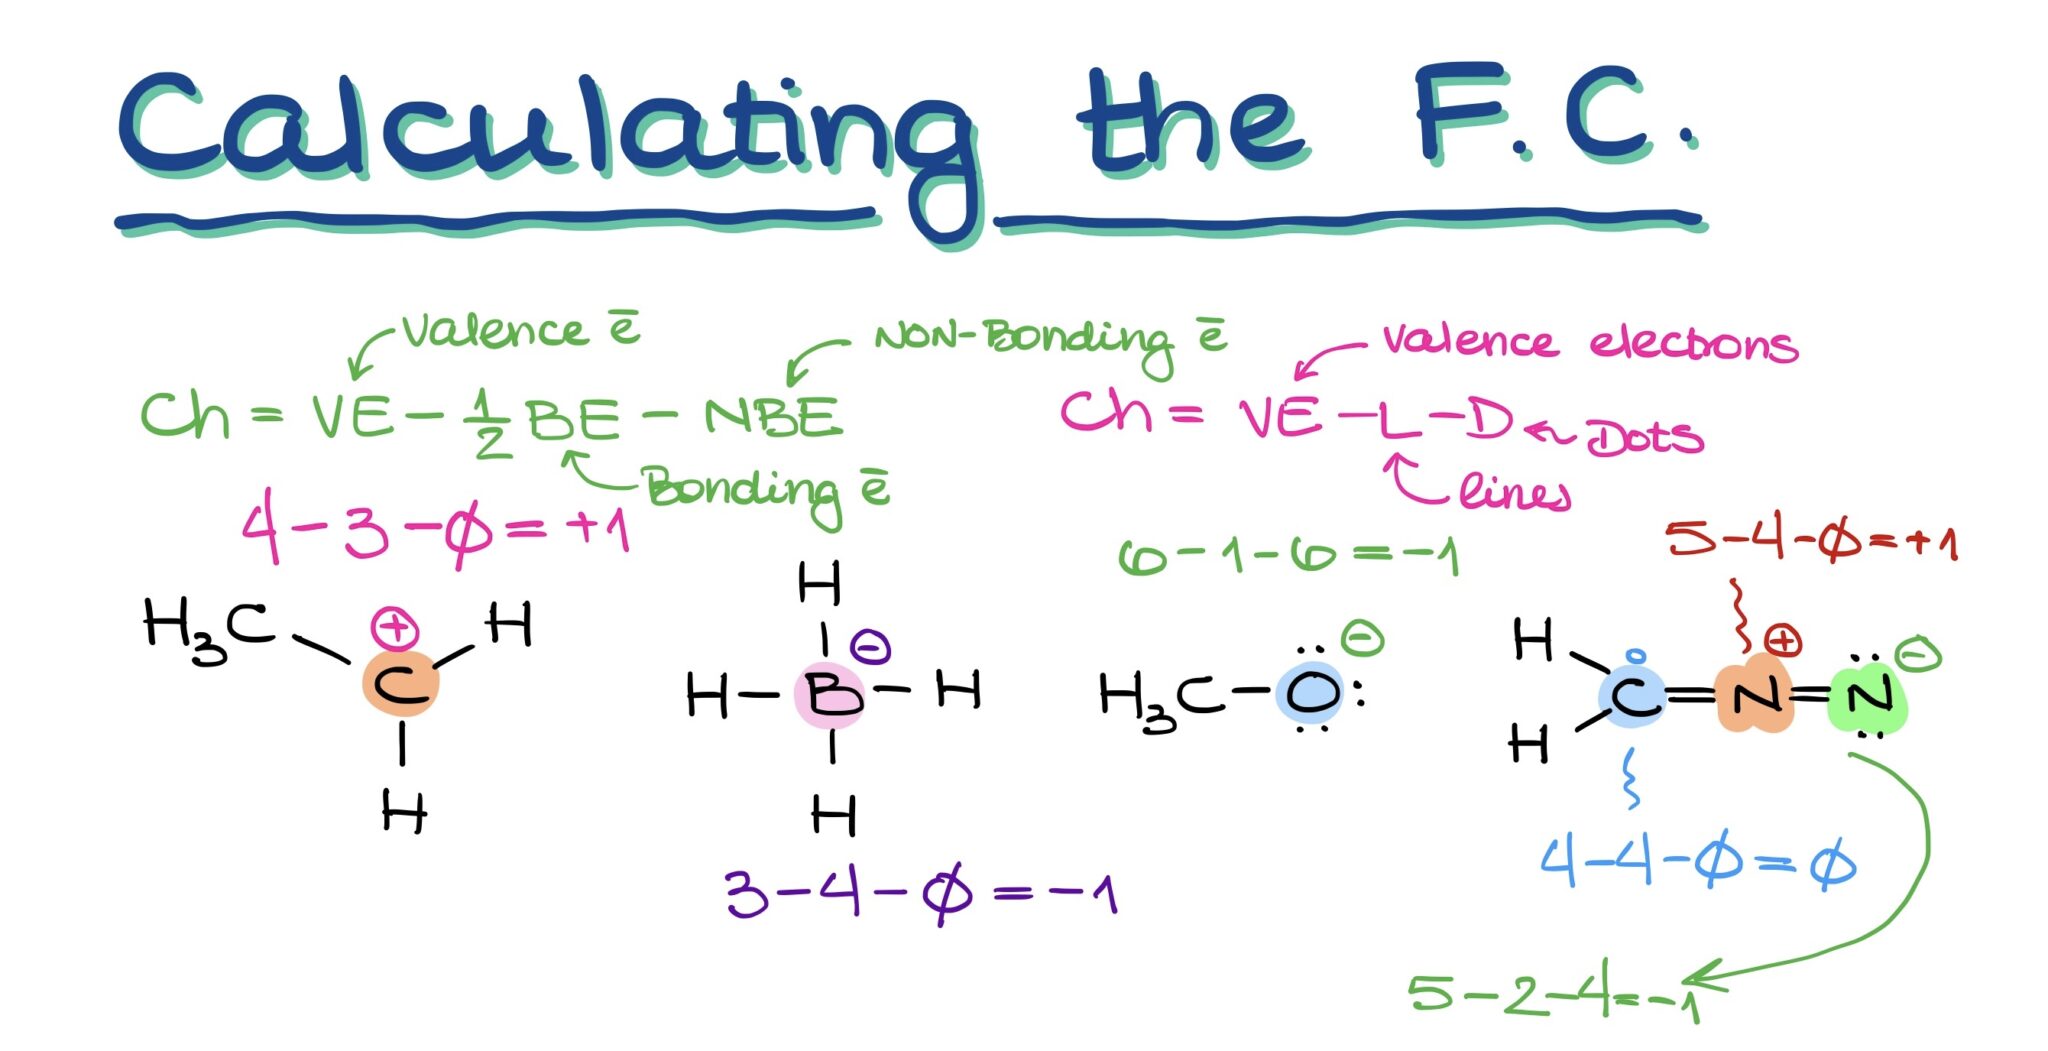 Calculating the F.C.
Valence ē
Non-Bonding ē
Ch = VE - 1/2 BE - NBE
Bonding ē
Valence electrons
Ch = VE - L - D ← Dots
lines
4 - 3 - ∅ = +1
H₃C C ⊕ H
H
H
H - B ⊖ - H
H
3 - 4 - ∅ = -1
6 - 1 - 6 = -1
H₃C - O: ⊖
5 - 4 - ∅ = +1
H
C = N = N
o ⊕ ⊖
H
4 - 4 - ∅ = ∅
5 - 2 - 4 = -1